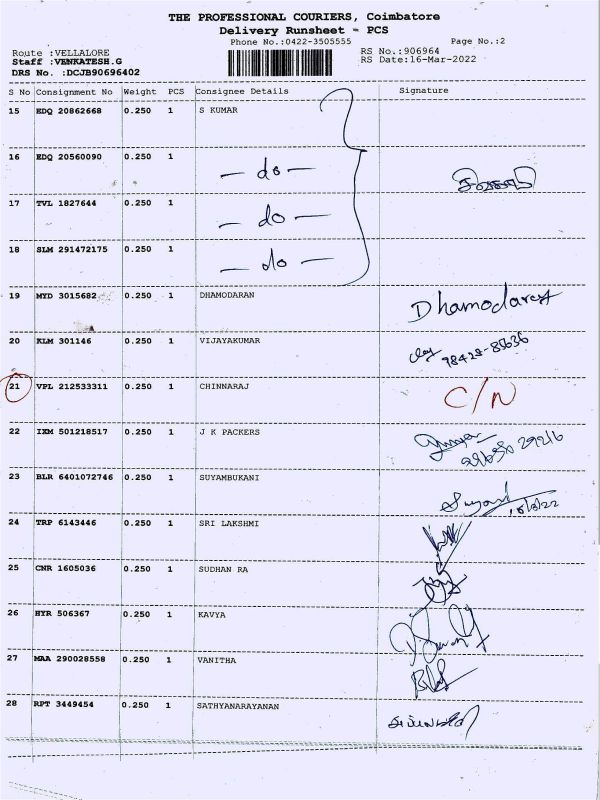 THE PROFESSIONAL COURIERS, Coimbatore
Delivery Runsheet - PCS
Phone No.:0422-3505555 Page No.:2
Route :VELLALORE RS No.:906964
Staff :VENKATESH.G RS Date:16-Mar-2022
DRS No. :DCJB90696402
S No Consignment No Weight PCS Consignee Details Signature
15 EDQ 20862668 0.250 1 S KUMAR
16 EDQ 20560090 0.250 1 - do -
17 TVL 1827644 0.250 1 - do -
18 SLM 291472175 0.250 1 - do -
19 MYD 3015682 0.250 1 DHAMODARAN Dhamodaran
20 KLM 301146 0.250 1 VIJAYAKUMAR
21 VPL 212533311 0.250 1 CHINNARAJ C/N
22 IXM 501218517 0.250 1 J K PACKERS
23 BLR 6401072746 0.250 1 SUYAMBUKANI
24 TRP 6143446 0.250 1 SRI LAKSHMI
25 CNR 1605036 0.250 1 SUDHAN RA
26 HYR 506367 0.250 1 KAVYA
27 MAA 290028558 0.250 1 VANITHA
28 RPT 3449454 0.250 1 SATHYANARAYANAN